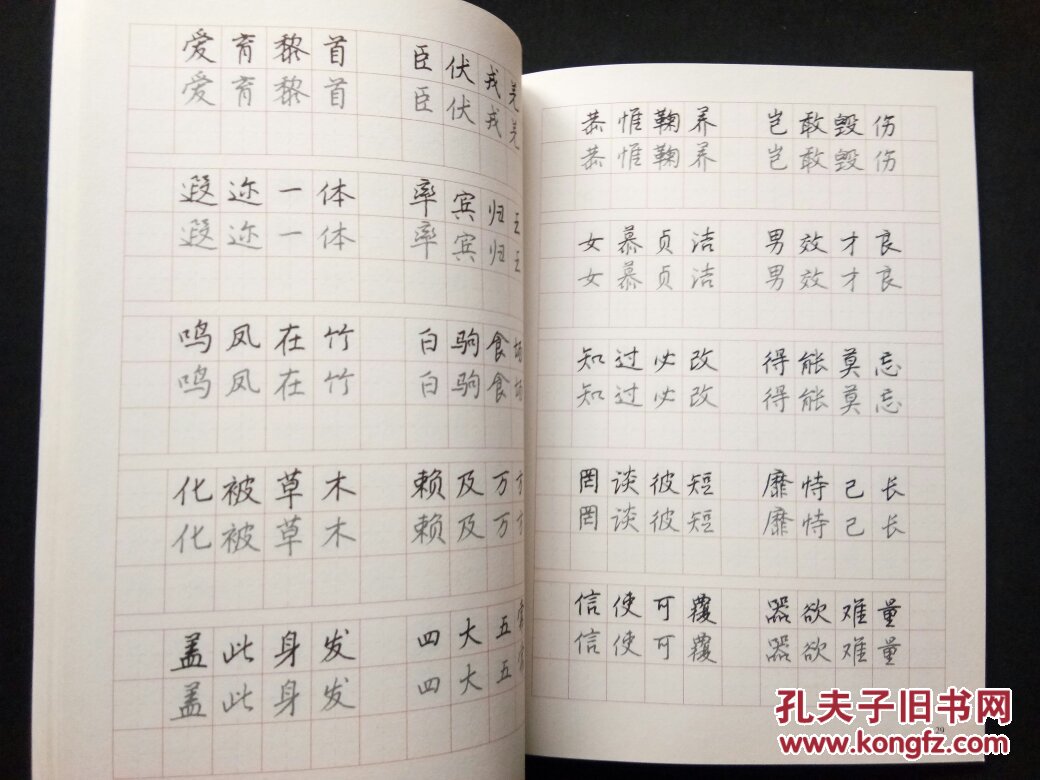 爱育黎首 臣伏戎羌
爱育黎首 臣伏戎羌
遐迩一体 率宾归王
遐迩一体 率宾归王
鸣凤在竹 白驹食场
鸣凤在竹 白驹食场
化被草木 赖及万方
化被草木 赖及万方
盖此身发 四大五常
盖此身发 四大五常
恭惟鞠养 岂敢毁伤
恭惟鞠养 岂敢毁伤
女慕贞洁 男效才良
女慕贞洁 男效才良
知过必改 得能莫忘
知过必改 得能莫忘
罔谈彼短 靡恃己长
罔谈彼短 靡恃己长
信使可覆 器欲难量
信使可覆 器欲难量
29
孔夫子旧书网
www.kongfz.com